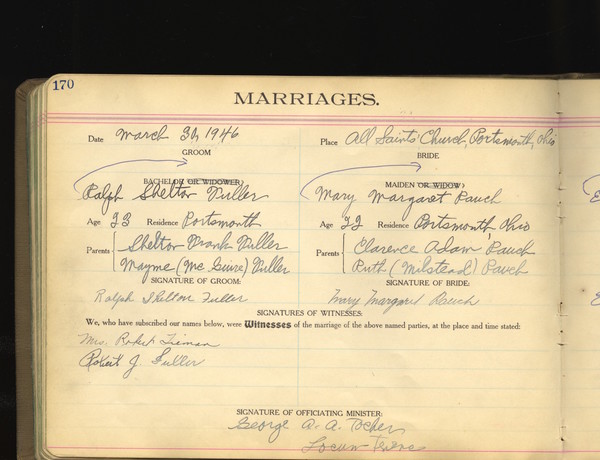 170
MARRIAGES.
Date March 30, 1946 Place All Saints' Church, Portsmouth, Ohio
GROOM BRIDE
BACHELOR (OR WIDOWER) MAIDEN (OR WIDOW)
Ralph Shelton Fuller Mary Margaret Rauch
Age 23 Residence Portsmouth Age 22 Residence Portsmouth Ohio
Parents Shelton Frank Fuller Parents Clarence Adam Rauch
Mayme (Mc Guire) Fuller Ruth (Milstead) Rauch
SIGNATURE OF GROOM: SIGNATURE OF BRIDE:
Ralph Shelton Fuller Mary Margaret Rauch
SIGNATURES OF WITNESSES:
We, who have subscribed our names below, were Witnesses of the marriage of the above named parties, at the place and time stated:
Mrs. Robert
Robert J. Fuller
SIGNATURE OF OFFICIATING MINISTER:
George A. A. Tocher
Locum Tenens